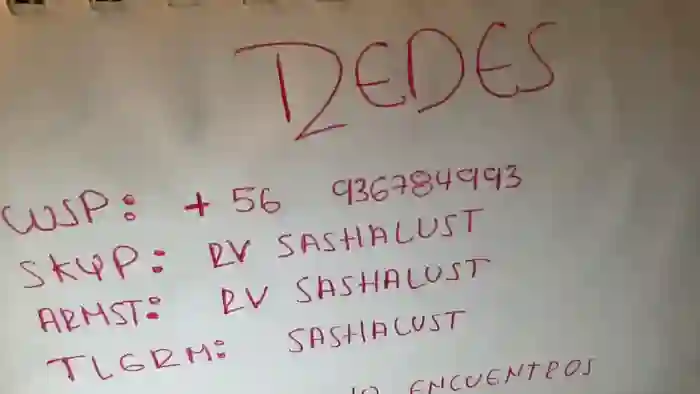 REDES
WSP: + 56 936784993
SKYP: RV SASHALUST
ARMST: RV SASHALUST
TLGRM: SASHALUST
ENCUENTROS